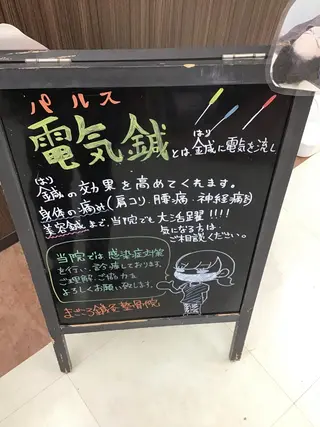 パルス
電気鍼とは、鍼に電気を流し
はり
はり
鍼の効果を高めてくれます。
身体の痛み(肩コリ・腰痛・神経痛)
美容鍼まで、当院でも大活躍!!!!
気になる方は、
ご相談ください。
当院では感染症対策
を行い、診療しております。
ご理解・ご協力を
よろしくお願い致します。
まごころ鍼灸整骨院